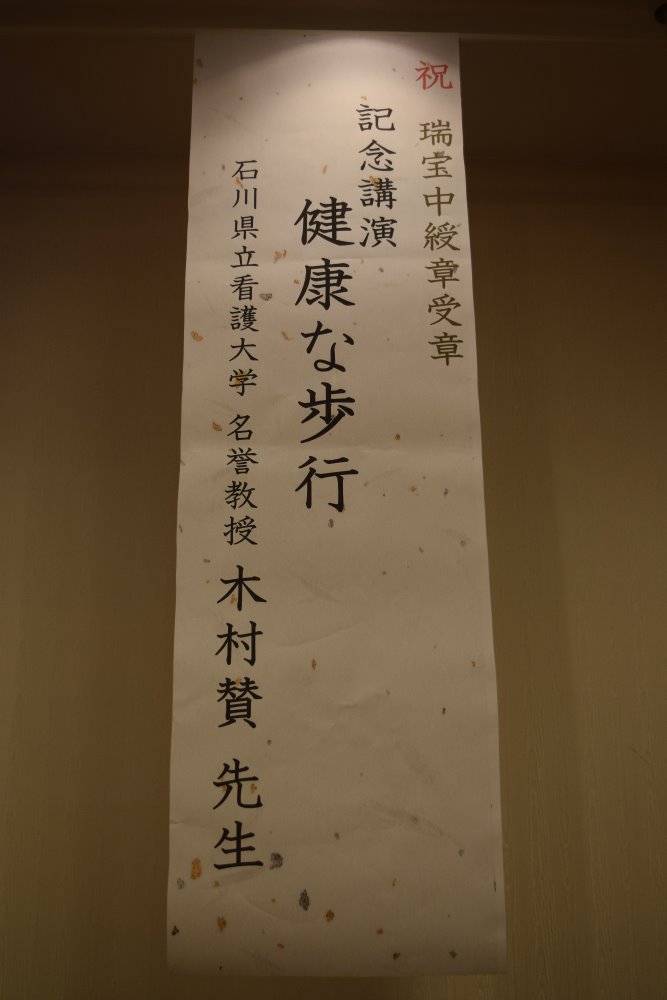 祝 瑞宝中綬章受章
記念講演
健康な歩行
石川県立看護大学 名誉教授 木村賛 先生